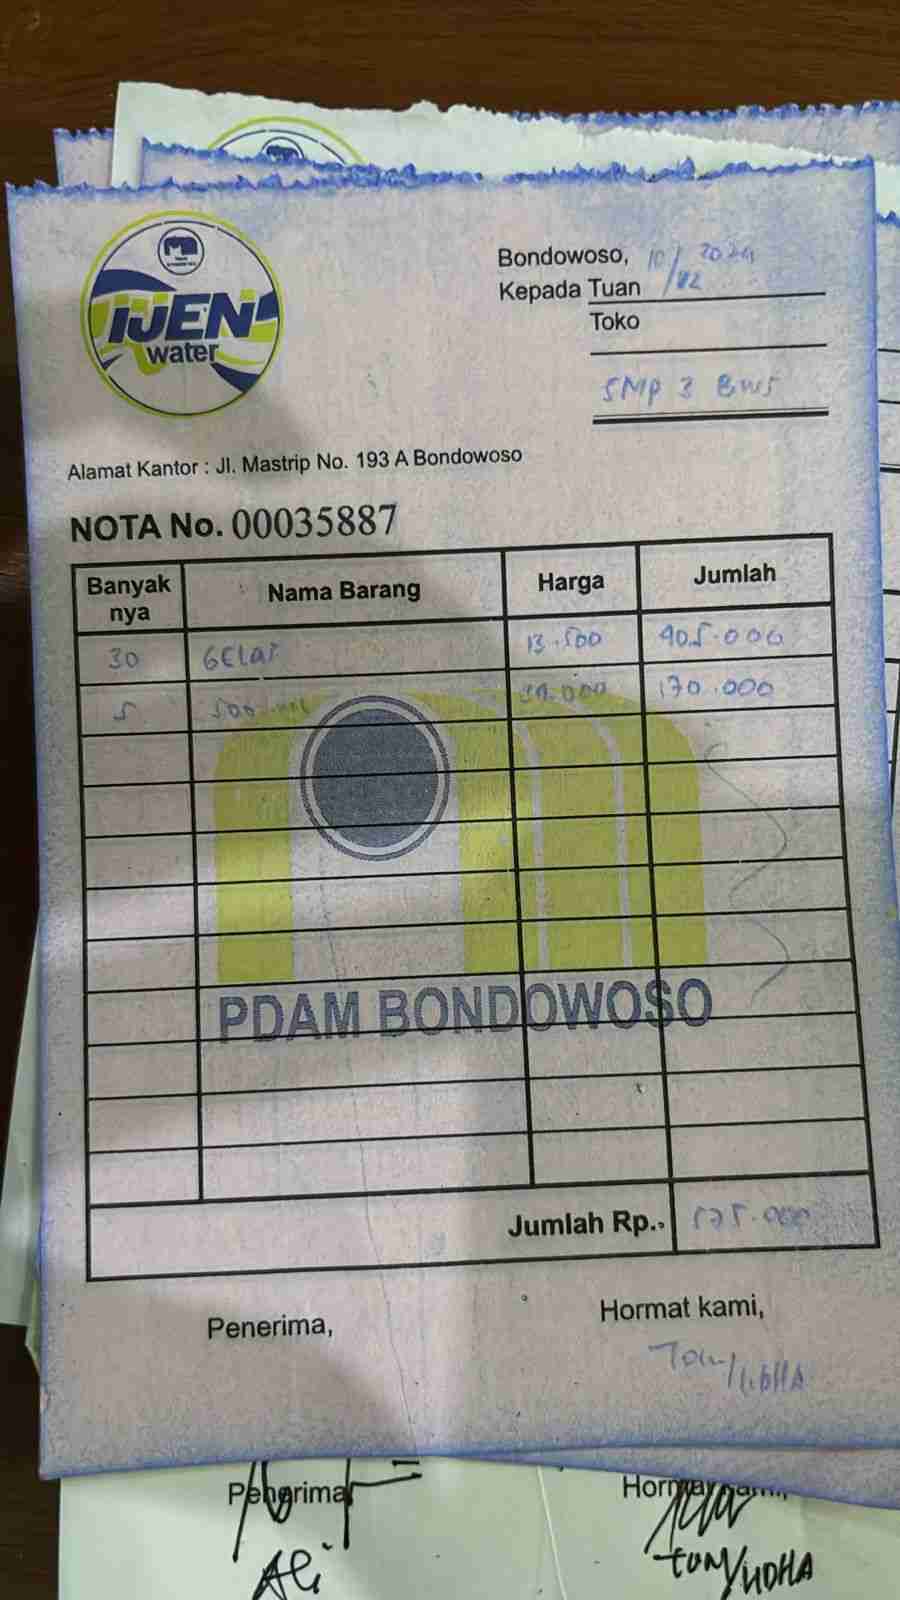 IJEN
water
Bondowoso, 10/12 2024
Kepada Tuan
Toko
SMP 3 BWS
Alamat Kantor : Jl. Mastrip No. 193 A Bondowoso
NOTA No. 00035887
Banyak nya Nama Barang Harga Jumlah
30 GELAS 13.500 405.000
5 500 ml 34.000 170.000
PDAM BONDOWOSO
Jumlah Rp. 575.000
Penerima, Hormat kami,
Tony/Yudha
Penerima Hormat kami,
Ali Tony/YUDHA